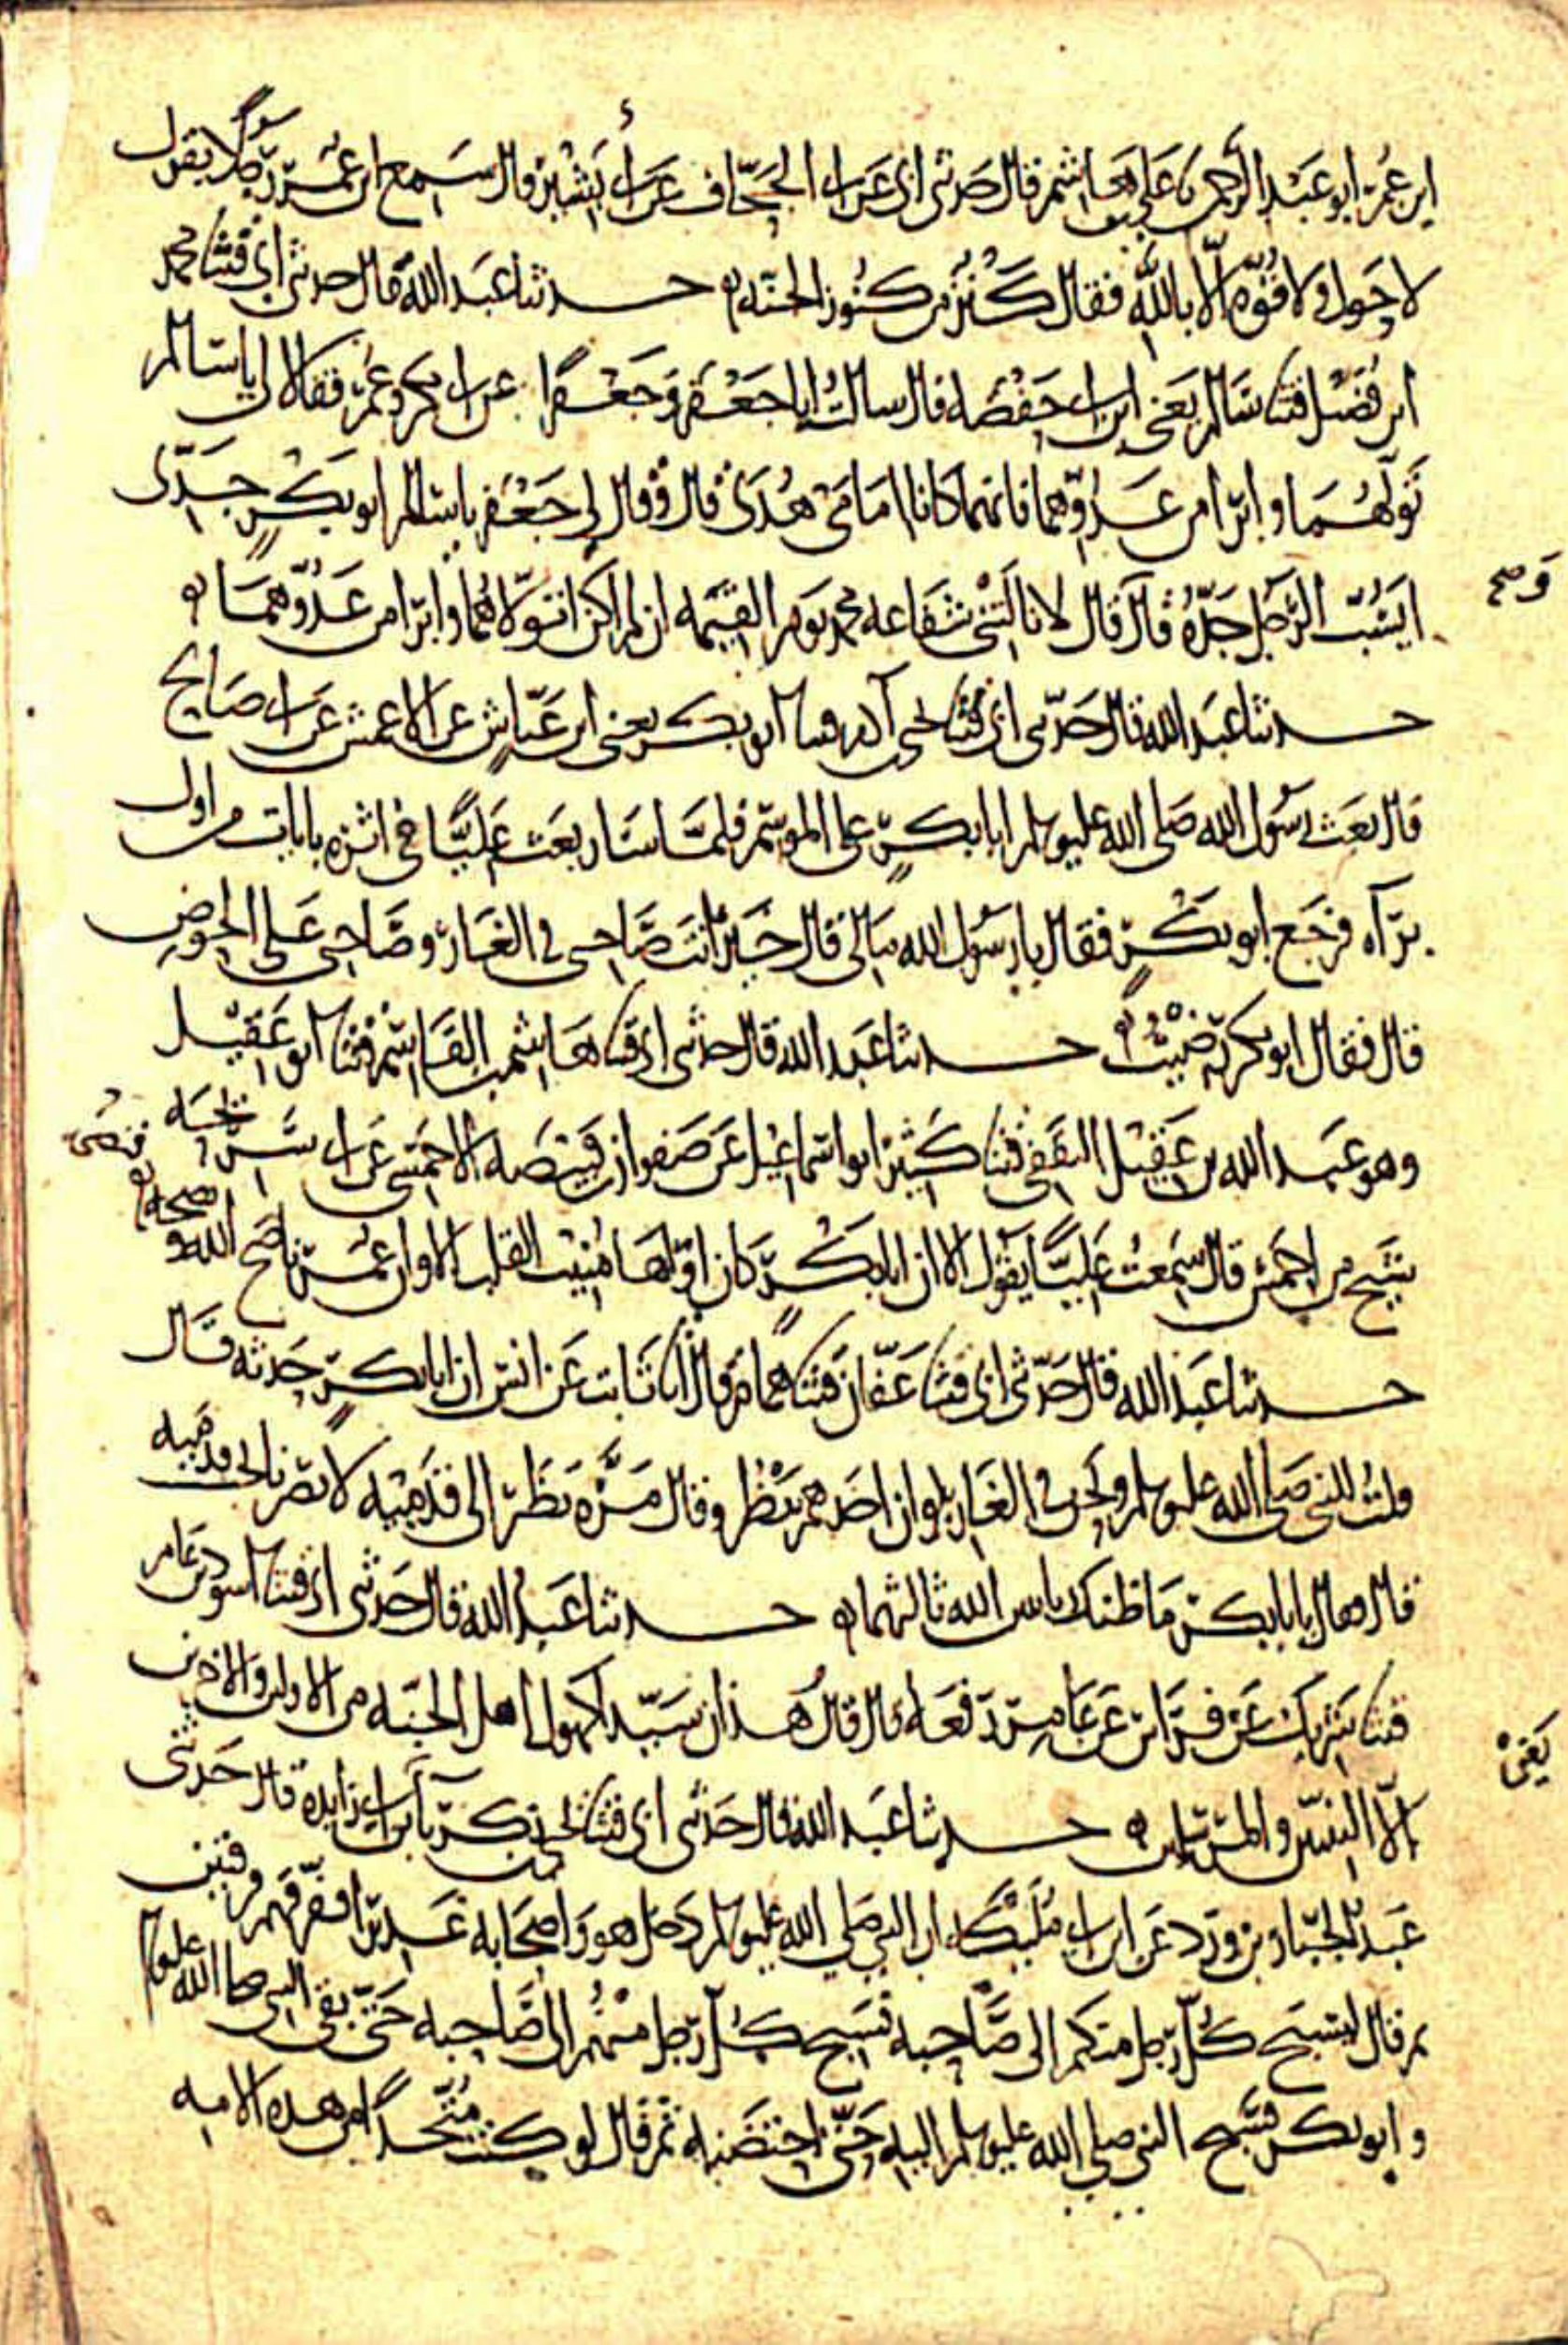 ابن عمر ابو عبد الرحمن نا علي بن هاشم قال حدثني ابي عن ابي الجحاف عن ابي بشير قال سمع ابن عمر رجلا يقول
لا حول ولا قوة الا بالله فقال كنز من كنوز الجنه حدثنا عبد الله قال حدثني ابي قثنا محمد
ابن فضيل قثنا سالم يعني ابن ابي حفصه قال سالت ابا جعفر وجعفرا عن ابي بكر وعمر فقالا لي يا سالم
تولهما وابرا من عدوهما فانهما كانا امامي هدى قال وقال لي جعفر يا سالم ابو بكر جدي
ايسب الرجل جده قال قال لا نالتني شفاعه محمد يوم القيمه ان لم اكن اتولاهما وابرا من عدوهما
حدثنا عبد الله قال حدثني ابي قثنا يحيى بن آدم قثنا ابو بكر يعني ابن عياش عن الاعمش عن ابي صالح
قال بعث رسول الله صلى الله عليه وسلم ابا بكر على الموسم فلما سار بعث عليا في اثره بايات من اول
برآه فرجع ابو بكر فقال يا رسول الله مالي قال خير انت صاحبي في الغار وصاحبي على الحوض
قال فقال ابو بكر رضيت حدثنا عبد الله قال حدثني ابي قثنا هاشم بن القاسم قثنا ابو عقيل
وهو عبد الله بن عقيل الثقفي قثنا كثير ابو اسماعيل عن صفوان بن قبيصه الاحمسي عن ابي سريحه
شيخ من احمس قال سمعت عليا يقول الا ان ابا بكر كان اواها منيب القلب الا وان عمر ناصح الله
حدثنا عبد الله قال حدثني ابي قثنا عفان قثنا همام قال انا ثابت عن انس ان ابا بكر حدثه قال
قلت للنبي صلى الله عليه وسلم ونحن في الغار لو ان احدهم ينظر وقال مره نظر الى قدميه لابصرنا تحت قدميه
قال فقال يا ابا بكر ما ظنك باثنين الله ثالثهما حدثنا عبد الله قال حدثني ابي قثنا اسود بن عامر
قثنا شريك عن فراس عن عامر رفعه قال قال هذان سيدا كهول اهل الجنه من الاولين والاخرين
الا النبيين والمرسلين حدثنا عبد الله قال حدثني ابي قثنا يحيى بن زكريا بن ابي زايده قال حدثني
عبد الجبار بن ورد عن ابن ابي مليكه ان النبي صلى الله عليه وسلم دخل هو واصحابه غديرا ففرقهم فرقتين
ثم قال ليسبح كل رجل منكم الى صاحبه فسبح كل رجل منهم الى صاحبه حتى بقي النبي صلى الله عليه وسلم
وابو بكر فسبح النبي صلى الله عليه وسلم اليه حتى احتضنه ثم قال لو كنت متخذا من هذه الامه
يعني